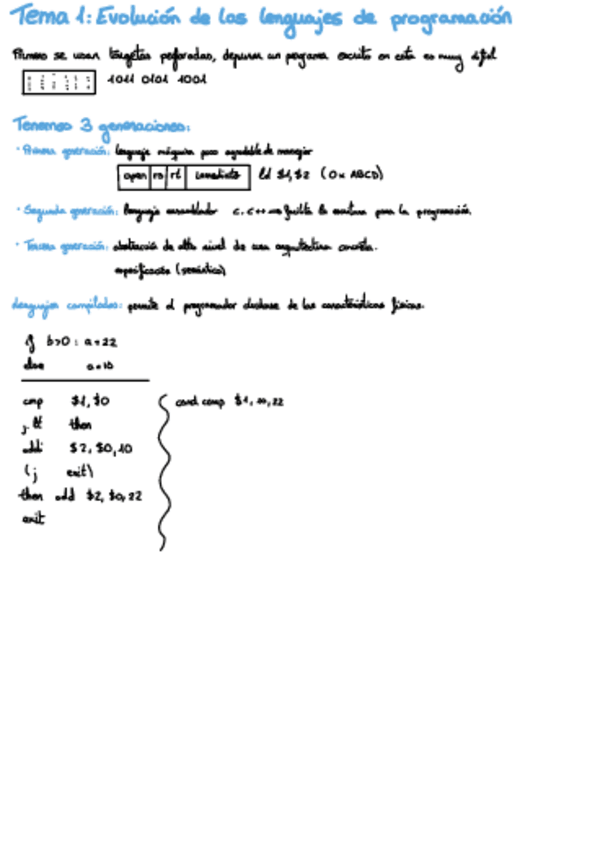 Tema 1: Evolución de los lenguajes de programación
Primero se usan targetas perforadas, depurar un programa escrito en esta es muy difil
1011 0101 1001
Tenemos 3 generaciones:
· Primera generación: lenguaje máquina poco agradable de manejar
open rs rt inmediato ld $1,$2 (0x ABCD)
· Segunda generación: lenguaje ensamblador c, c++ → facilita la escritura para la programación.
· Tercera generación: abstracción de alto nivel de una arquitectura concreta.
especificación (semántica)
Lenguajes compilados: permite al programador de las características físicas.
if b>0: a=22
else a=10
cmp $1, $0
j.lt then
addi $2, $0, 10
(j exit)
then add $2, $0, 22
exit
cond.comp $1, 10, 22